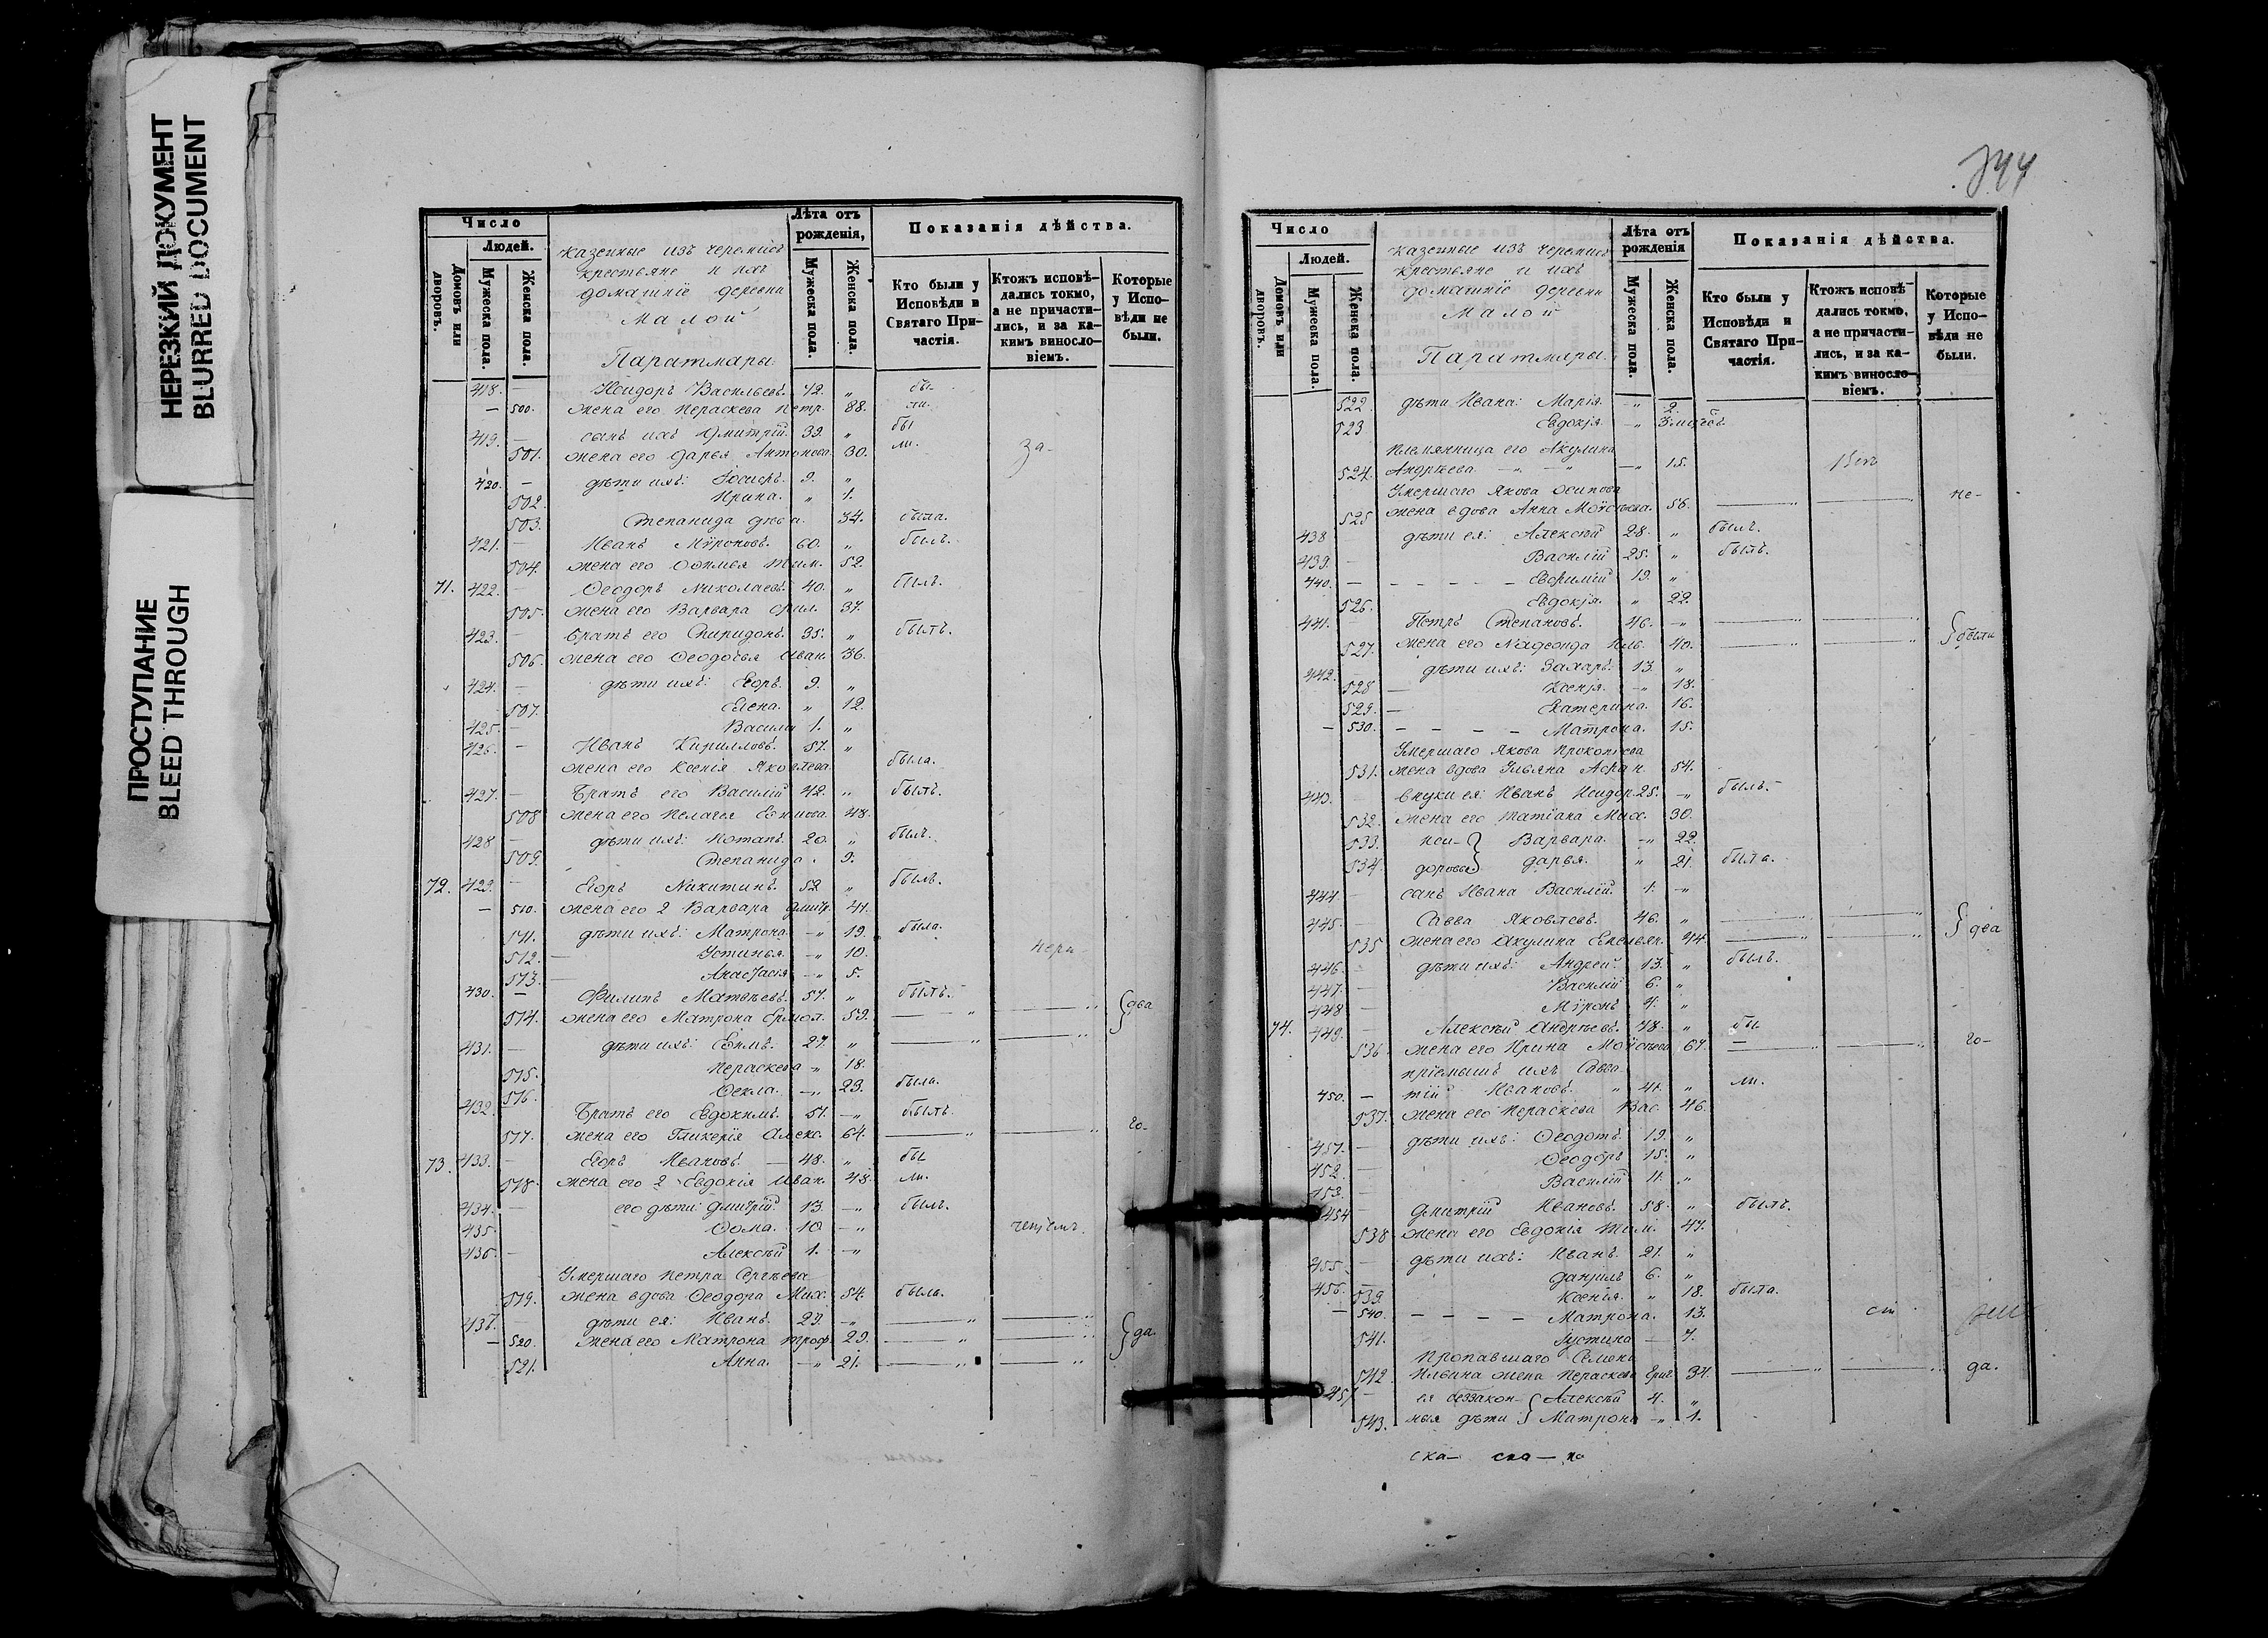 НЕРЕЗКИЙ ДОКУМЕНТ
BLURRED DOCUMENT
ПРОСТУПАНИЕ
BLEED THROUGH
Число
Людей.
Домовъ или дворовъ.
Мужеска пола.
Женска пола.
казенные изъ черемисъ
крестьяне и ихъ
домашніе деревни
Малой
Паратмары.
Лѣта отъ рожденія,
Мужеска пола.
Женска пола.
Показанія дѣйства.
Кто были у Исповѣди и Святаго Причастія.
Ктожъ исповѣдались токмо, а не причастились, и за какимъ винословіемъ.
Которые у Исповѣди не были.
418. — Исидоръ Васильевъ. 72. „ бы
— 500. жена его Параскева Петр. 88. ли.
419. — сынъ ихъ Дмитрій. 39. „ бы
501. жена его Дарья Антонова. 30. ли. За-
420. — дѣти ихъ: Іосифъ. 9. „
502. Ирина. „ 1.
503. Степанида дѣва. 34. была.
421. — Иванъ Мѵроновъ. 60. „ былъ.
504. жена его Софимья Тим. 52.
71. 422. — Ѳеодоръ Николаевъ. 40. „ былъ.
505. жена его Варвара 37.
423. — братъ его Спиридонъ. 35. „ былъ.
506. жена его Ѳеодосья Иван. 36.
424. — дѣти ихъ: Егоръ. 9. „
507. Елена. „ 12.
425. — Василій 1. „
426. — Иванъ Кирилловъ. 57. „
жена его Ксенія Яковлева была.
427. — Братъ его Василій 42. „ былъ.
508 жена его Пелагея 48.
428 — дѣти ихъ: Потапъ. 20. „ былъ.
509. Степанида. 9.
72. 429. — Егоръ Никитинъ. 52 „ былъ.
— 510. жена его 2 Варвара Дмитр. 41.
511. дѣти ихъ: Матрона. —„ 19. была.
512. — Устинья. —„ 10. нера
513. — Анастасія —„ 5.
430. — Филипъ Матвѣевъ. 57. „ былъ.
514. жена его Матрона Ермол. 59. —„ —„ два
431. — дѣти ихъ: 27. „ —„ —„
515. Параскева „ 18.
516. Ѳекла. —„ 23. была.
432 — Братъ его Евдокимъ. 57. —„ былъ.
517. жена его Гликерія Алекс. 64. —„ —„ го-
73. 433. — Егоръ Ивановъ. — 48. „ бы
518. жена его 2 Евдокія Иван. 48. ли.
434. — его дѣти: Дмитрій. 13. —„ былъ.
435. Ѳома. 10 —„
436. — Алексѣй 1. —„
Умершаго Петра Сергѣева
519. жена вдова Ѳеодора Мих. 54. была.
437. — дѣти ея: Иванъ. 29. —„ —„ —„
— 520. жена его Матрона Троф. 29. —„ —„ да.
521. Анна. —„ 21. —„ —„
Число
Людей.
Домовъ или дворовъ.
Мужеска пола.
Женска пола.
казенные изъ черемисъ
крестьяне и ихъ
домашніе деревни
Малой
Паратмары.
Лѣта отъ рожденія
Мужеска пола.
Женска пола.
Показанія дѣйства.
Кто были у Исповѣди и Святаго Причастія.
Ктожъ исповѣдались токмо, а не причастились, и за какимъ винословіемъ.
Которые у Исповѣди не были.
522. дѣти Ивана: Марія. —„ 2.
523 Евдокія. —„
Племянница его Акулина
524. Андрѣева —„ 15.
Умершаго Якова Осипова не-
525 жена вдова Анна Моѵсѣева. 56. —„ —„
438 — дѣти ея: Алексѣй 28. „ былъ.
439. — Василій 25. „ былъ.
440. — Евфимій 19. „
526. Евдокія. „ 22.
441. — Петръ Степановъ. 46. —„ —„ —„ были
527. жена его 40. —„ —„
442. — дѣти ихъ: Захаръ. 13. „
528 — Ксенія. —„ 18.
529. — Екатерина. 16.
— 530. — Матрона. 15.
Умершаго Якова Прокопіева
531. жена вдова Ульяна 54.
443. — внуки ея: Иванъ Исидор. 25. —„ былъ.
532. жена его Татіана Мих. 30.
533. Иси- Варвара. —„ 22.
534. дорова Дарья. „ 21. была.
444 — сынъ Ивана Василій. 1. —„
445. — Савва Яковлевъ. 46. „ —„ —„
535 жена его Акулина Емельян. 44. —„ —„ два
446. — дѣти ихъ: Андрей. 13. „ былъ.
447. — Василій 6. „
448 — Мѵронъ 4. „
74. 449. — Алексѣй Андрѣевъ. 78. „ бы-
536 жена его Ирина Моѵсѣева 67. —„ —„ го-
пріемышъ ихъ Савва-
450. — тій Ивановъ. „ 41. „ ли.
537. жена его Параскева Вас. 46.
451. — дѣти ихъ: Ѳеодотъ. 19. „
452. — Ѳеодоръ 15. „
453. — Василій 11. „
454 — Дмитрій Ивановъ. 58. „ былъ.
538 жена его Евдокія Тим. 47.
455. — дѣти ихъ: Иванъ. 21. „
456. Даніилъ 6. „
539. Ксенія. „ 18. была.
— 540. — Матрона. 13.
541. Іустина — 7.
Пропавшаго Семена
542. Ильина жена Параскева 34. —„ —„ да.
457 — ея беззакон- Алексѣй 4. „
543. ныя дѣти Матрона —„ 1.